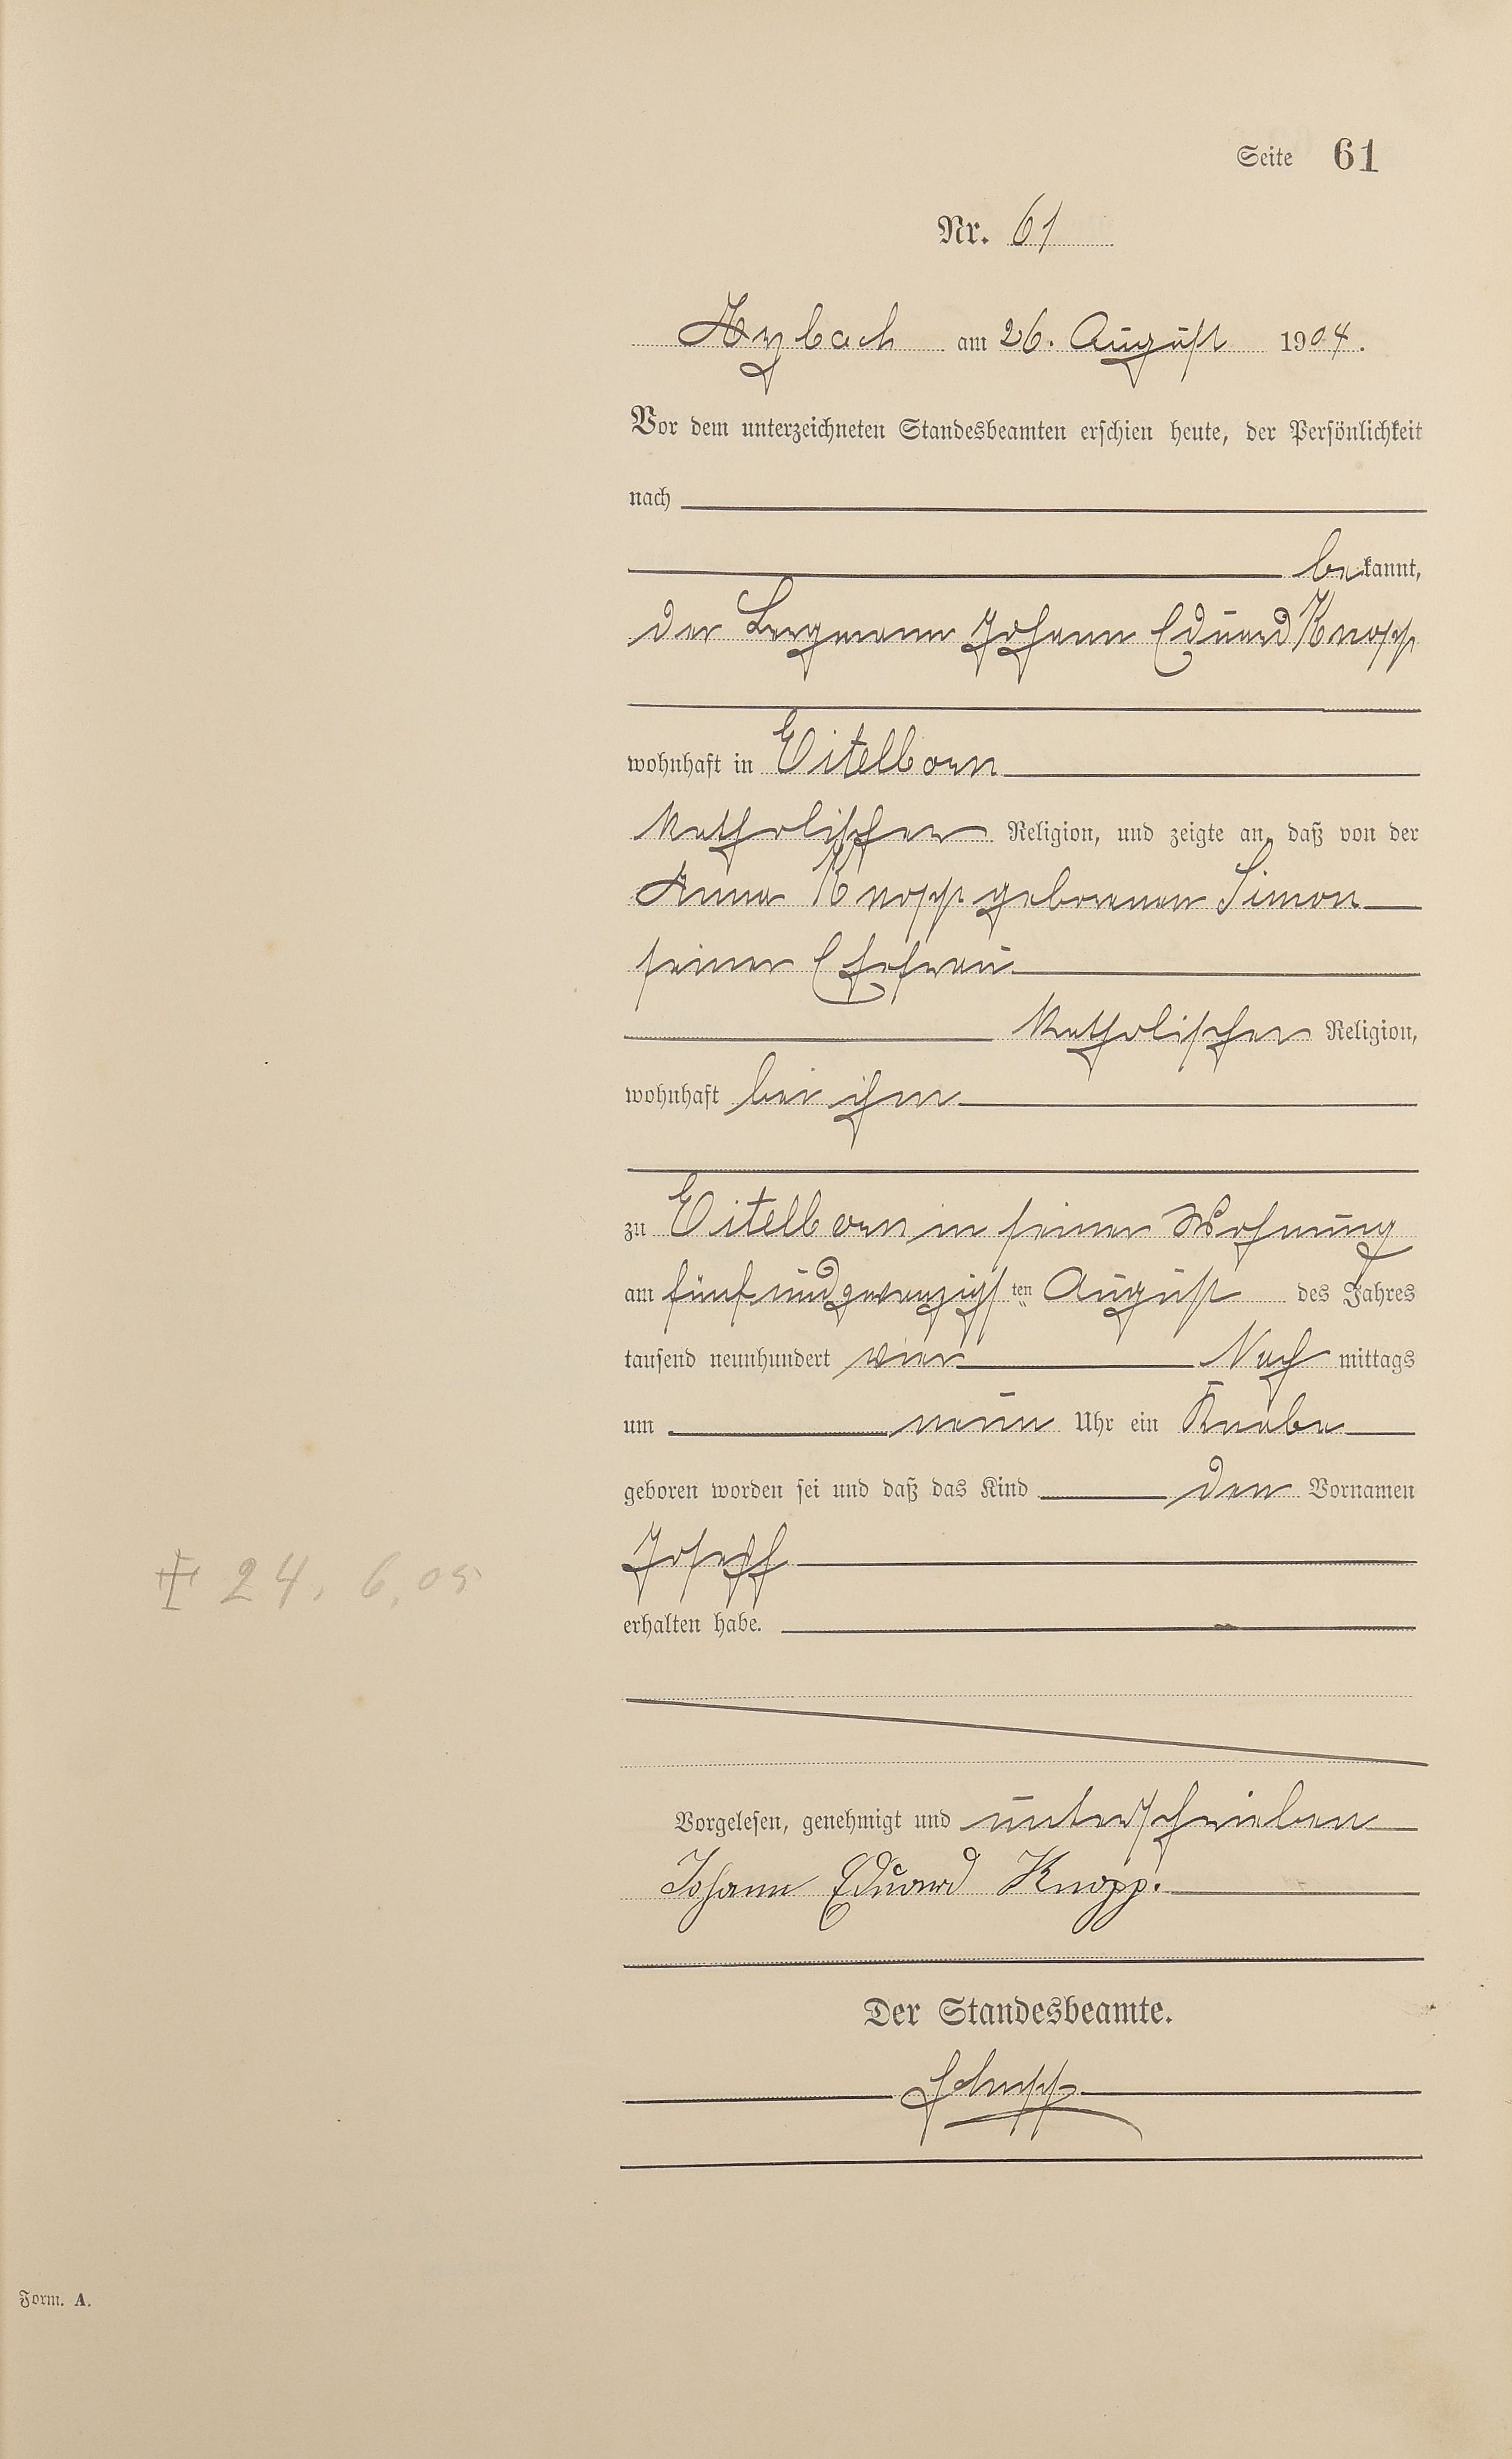 Seite 61
Nr. 61
Arzbach am 26. August 1904.
Vor dem unterzeichneten Standesbeamten erschien heute, der Persönlichkeit
nach
bekannt,
der Bergmann Johann Eduard Knopp
wohnhaft in Eitelborn
katholischer Religion, und zeigte an, daß von der
Anna Knopp geborenen Simon
seiner Ehefrau
katholischer Religion,
wohnhaft bei ihm
zu Eitelborn in seiner Wohnung
am fünfundzwanzigsten August des Jahres
tausend neunhundert vier Nachmittags
um neun Uhr ein Knabe
geboren worden sei und daß das Kind den Vornamen
Joseph
† 24. 6. 05
erhalten habe.
Vorgelesen, genehmigt und unterschrieben
Johann Eduard Knopp.
Der Standesbeamte.
Schupp
Form. A.